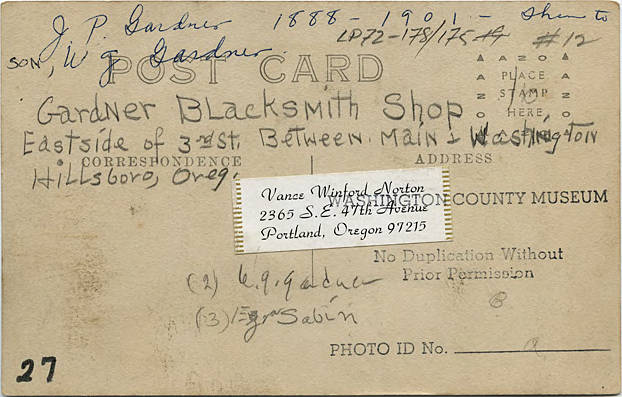 J. P. Gardner 1888-1901 - Then to
SON, W G Gardner
LP72-178/175 #12
POST CARD
AZO
PLACE
STAMP
HERE
Gardner Blacksmith Shop
Eastside of 3rd St. Between Main & Washington
CORRESPONDENCE
ADDRESS
Hillsboro, Oreg.
Vance Winford Norton
2365 S.E. 47th Avenue
Portland, Oregon 97215
WASHINGTON COUNTY MUSEUM
No Duplication Without
Prior Permission
(2) W.G. Gardner
(3) Sabin
PHOTO ID No.
27